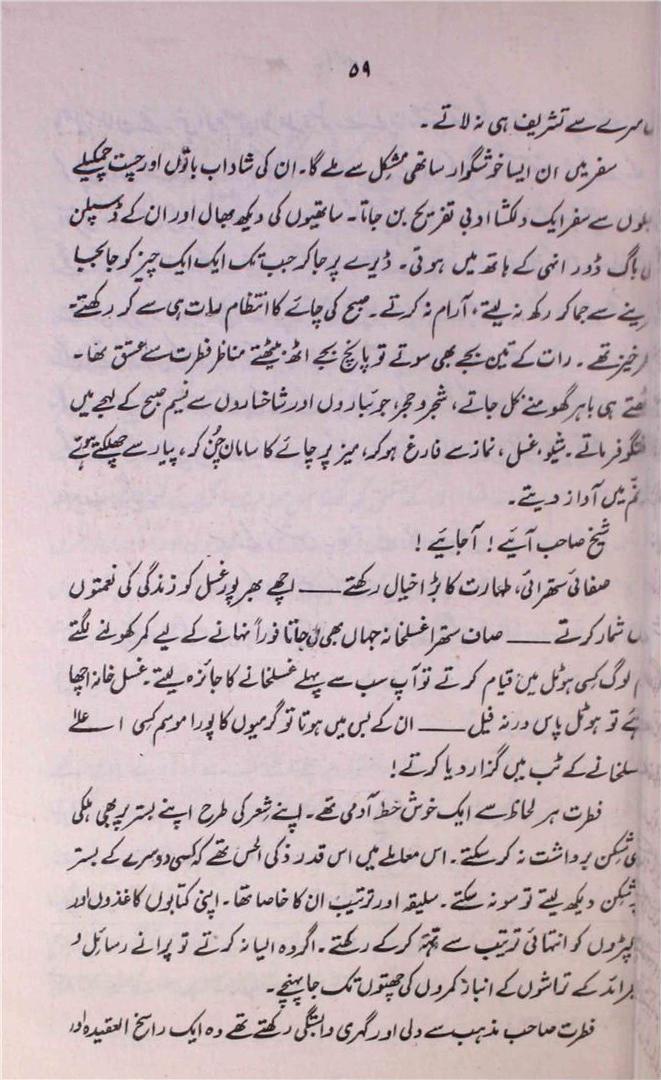 ۵۹
سرے سے تشریف ہی نہ لاتے۔
سفر میں ان ایسا خوشگوار ساتھی مشکل سے ملے گا۔ ان کی شاداب باتوں اور چست چمکیلے
سے سفر ایک دلکشا ادبی تفریح بن جاتا۔ ساتھیوں کی دیکھ بھال اور ان کے ڈسپلن
باگ ڈور انہی کے ہاتھ میں ہوتی۔ ڈیرے پر جا کر جب تک ایک ایک چیز کو جا بجا
سے جما کر رکھ نہ لیتے، آرام نہ کرتے۔ صبح کی چائے کا انتظام رات ہی سے کر رکھتے۔
خیز تھے۔ رات کے تین بجے بھی سوتے تو پانچ بجے اٹھ بیٹھتے مناظر فطرت سے عشق تھا۔
ہی باہر گھومنے نکل جاتے، شجر و حجر، جوئباروں اور شاخساروں سے نسیم صبح کے لہجے میں
فرماتے۔ شیو، غسل، نماز سے فارغ ہو کر، میز پر چائے کا سامان چُن کر، پیار سے چھلکتے ہوئے
میں آواز دیتے۔
شیخ صاحب آیئے! آجایئے!
صفائی ستھرائی، طہارت کا بڑا خیال رکھتے ــــ اچھے بھرپور غسل کو زندگی کی نعمتوں
شمار کرتے ــــ صاف ستھرا غسلخانہ جہاں بھی مل جاتا فوراً نہانے کے لیے کمر کھولنے لگتے
لوگ کسی ہوٹل میں قیام کرتے تو آپ سب سے پہلے غسلخانے کا جائزہ لیتے۔ غسل خانہ اچھا
ہے تو ہوٹل پاس ورنہ فیل ــــ ان کے بس میں ہوتا تو گرمیوں کا پورا موسم کسی اعلےٰ
غسلخانے کے ٹب میں گزار دیا کرتے!
فطرت ہر لحاظ سے ایک خوش خط آدمی تھے۔ اپنے شعر کی طرح اپنے بستر پر بھی ہلکی
شکن برداشت نہ کر سکتے۔ اس معاملے میں اس قدر ذکی الحس تھے کہ کسی دوسرے کے بستر
پہ شکن دیکھ لیتے تو سو نہ سکتے۔ سلیقہ اور ترتیب ان کا خاصا تھا۔ اپنی کتابوں کاغذوں اور
کپڑوں کو انتہائی ترتیب سے تہہ کر کے رکھتے۔ اگر وہ ایسا نہ کرتے تو پرانے رسائل و
جرائد کے تراشوں کے انبار کمروں کی چھتوں تک جا پہنچے۔
فطرت صاحب مذہب سے دلی اور گہری وابستگی رکھتے تھے وہ ایک راسخ العقیدہ اور